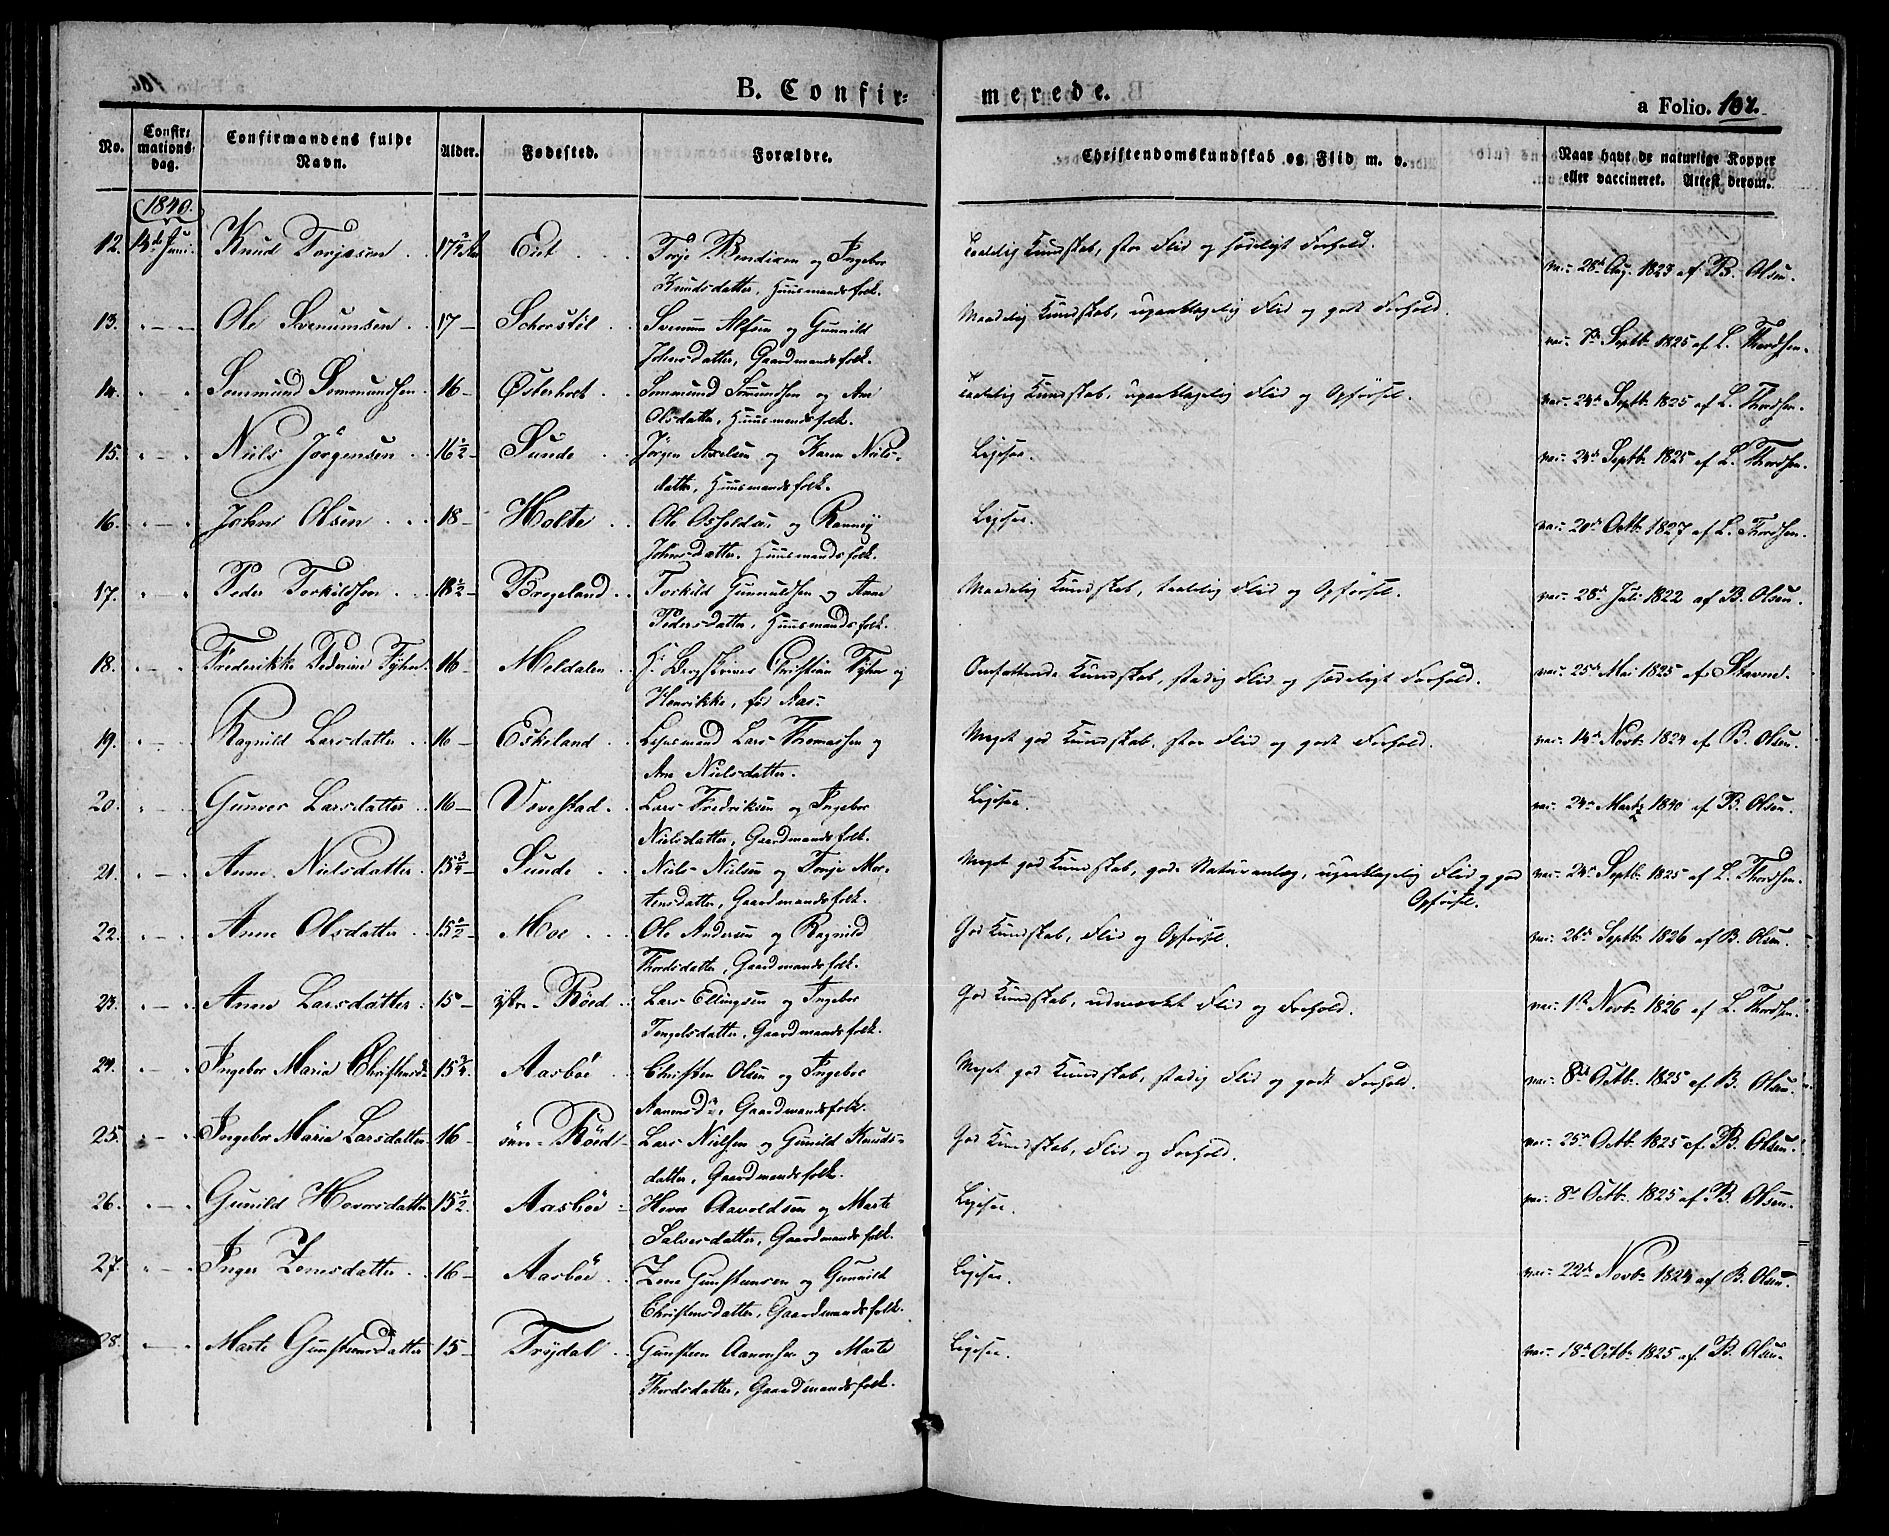 B. Confir= merede.
a Folio. 107.
No. Confir: mations- dag. Confirmandens fulde Navn. Alder. Fødested. Forældre. Christendomskundskab og Flid m. v. Naar havt de naturlige Kopper eller vaccineret. Attest derom.
1840.
12. 14de Juni. Knud Torjesen 17 1/2 Aar Eiet Torje Bendixen og Ingebor Knudsdatter, Huusmandsfolk. Taalelig Kundskab, stor Flid og sædeligt Forhold. vac. 28de Aug. 1823 af B. Olsen.
13. Ole Svenumsen 17 Schorstöl Svenum Alfsen og Gunnild Johnsdatter, Gaardmandsfolk. Maadelig Kundskab, upaaklagelig Flid og godt Forhold. vac. 8de Septb. 1825 af L. Thordsen.
14. Sommund Sommundsen 16 Østerholt Sommund Somundsen og Ane Olsdatter, Huusmandsfolk. Taalelig Kundskab, upaaklagelig Flid og Opførsel. vac. 24de Septb. 1825 af L. Thordsen.
15. Niels Jörgensen 16 1/2 Sunde Jörgen Axelsen og Karen Niels- datter, Huusmandsfolk. Ligesaa. vac. 24de Septb. 1825 af L. Thordsen.
16. John Olsen 18 Holte Ole Osfeldsen og Rannei Johnsdatter. Huusmandsfolk. Ligesaa. vac. 20de Octb. 1827 af L. Thordsen.
17. Peder Torkildsen 18 1/2 Brogeland Torkild Gunnuldsen og Anne Pedersdatter, Huusmandsfolk. Maadelig Kundskab, taalelig Flid og Opførsel. vac. 28de Juli 1822 af B. Olsen.
18. Frederikke Pederine Fyhn 16 Moldalen Hr. Bergskriver Christian Fyhn og Henrikke, fød Aas. Omfattende Kundskab, stadig Flid og sædeligt Forhold. vac. 25de Mai 1825 af Stavne.
19. Ragnild Larsdatter 16 Eskeland Lensmand Lars Thomassen og Ane Nielsdatter. Meget god Kundskab, stor Flid og godt Forhold. vac. 14de Novb. 1824 af B. Olsen.
20. Gunvor Larsdatter 16 Vovestad Lars Fredriksen og Ingebor Nielsdatter, Gaardmandsfolk. Ligesaa. vac. 24de Martz 1840 af B. Olsen.
21. Anne Nielsdatter 15 3/4 Sunde Niels Nielsen og Tonje Mor- tensdatter, Gaardmandsfolk. Meget god Kundskab, gode Naturanlæg, upaaklagelig Flid og god Opførsel. vac. 24de Septb. 1825 af L. Thordsen.
22. Anne Olsdatter 15 1/2 Moe Ole Andersen og Ragnild Thordsdatter, Gaardmandsfolk. God Kundskab, Flid og Opførsel. vac. 26de Septb. 1826 af B. Olsen.
23. Anne Larsdatter 15 ystre Röed Lars Ellingsen og Ingebor Tengelsdatter, Gaardmandsfolk. God Kundskab, udmærket Flid og Forhold. vac. 1ste Novb. 1826 af L. Thordsen.
24. Ingebor Maria Christensd. 15 3/4 Aasböe Christen Olsen og Ingebor Aanonsdr., Gaardmandsfolk. Meget god Kundskab, stadig Flid og godt Forhold. vac. 8de Octb. 1825 af B. Olsen.
25. Ingebor Maria Larsdatter 16 sönr. Röed Lars Nielsen og Gunild Knuds- datter, Gaardmandsfolk. God Kundskab, Flid og Forhold. vac. 25de Octb. 1825 af B. Olsen.
26. Gunild Hovorsdatter 15 1/2 Aasböe Hovor Aavoldsen og Marte Salvesdatter, Gaardmandsfolk. Ligesaa. vac. 8de Octb. 1825 af B. Olsen.
27. Inger Zenesdatter 16 Aasböe Zene Gunstensen og Gunnild Christensdatter, Gaardmandsfolk. Ligesaa. vac. 22de Novb. 1824 af B. Olsen.
28. Marte Gunsteensdatter 15 Frydal Gunsteen Aanonsen og Marte Thordsdatter, Gaardmandsfolk. Ligesaa. vac. 18de Octb. 1825 af B. Olsen.